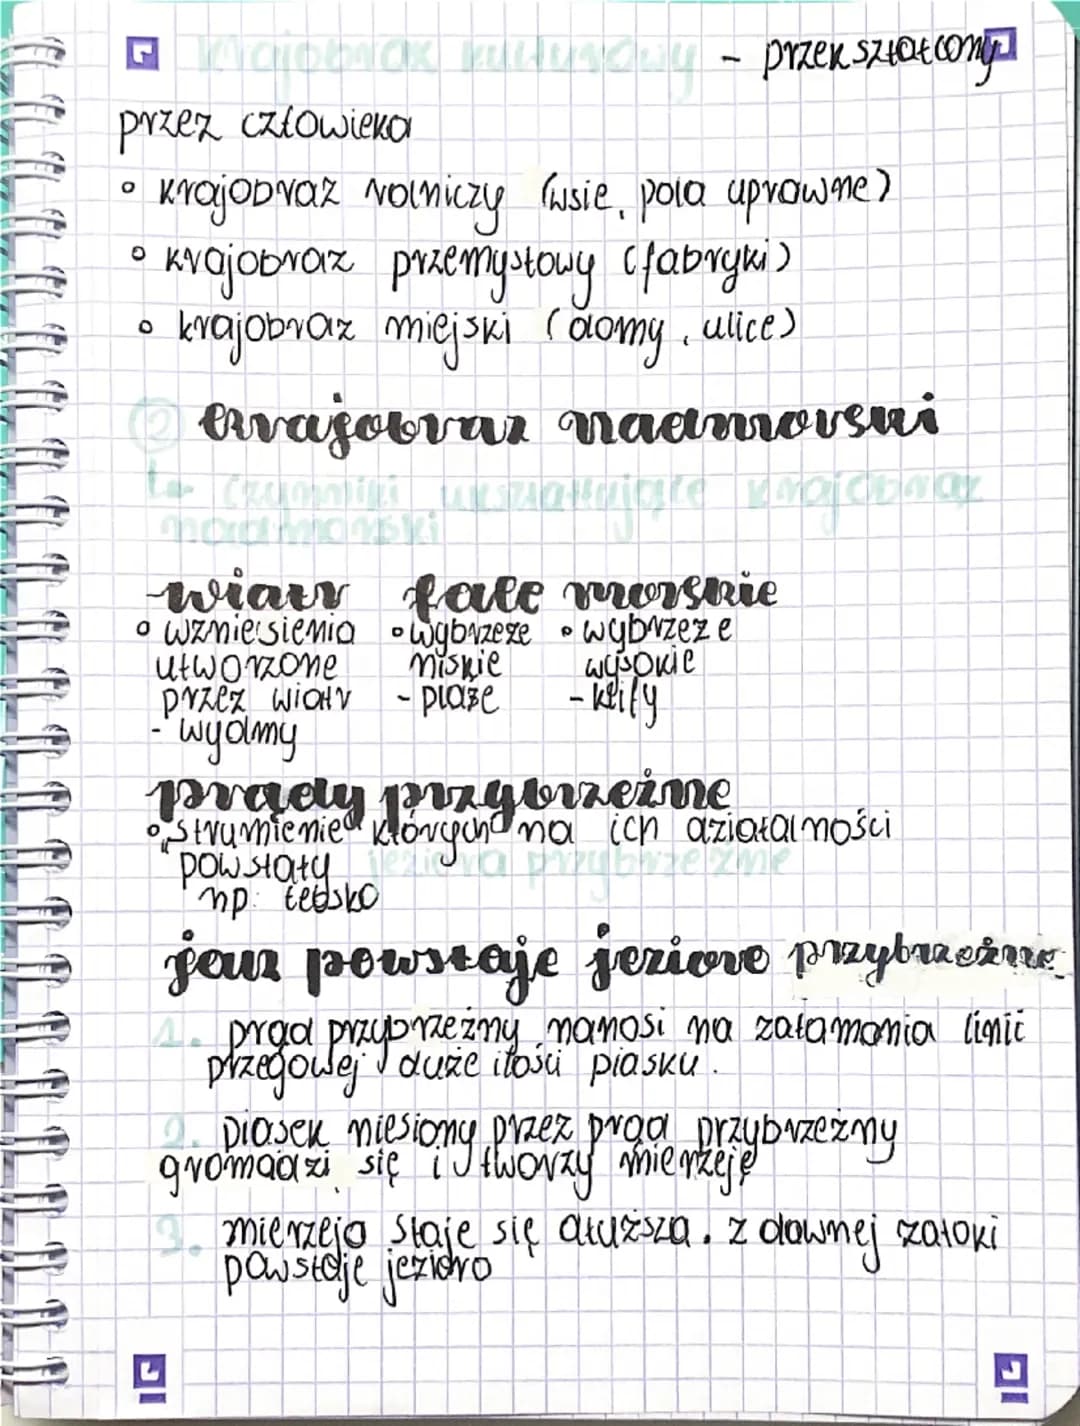 krajobraz kulturowy - przekształcony
przez człowieka
° krajobraz rolniczy (wsie, pola uprawne)
° krajobraz przemysłowy (fabryki)
° krajobraz miejski (domy, ulice)
② krajobraz nadmorski
↳ czynniki kształtujące krajobraz
nadmorski
wiatr fale morskie
° wzniesienia ° wybrzeże ° wybrzeże
utworzone niskie wysokie
przez wiatr - plaże - klify
- wydmy
prądy przybrzeżne
° strumienie których na ich działalności
powstały jeziora przybrzeżne
np. łebsko
jak powstaje jezioro przybrzeżne
1. prąd przybrzeżny nanosi na załamania linii
brzegowej duże ilości piasku.
2. piasek niesiony przez prąd przybrzeżny
gromadzi się i tworzy mierzeję
3. mierzeja staje się dłuższa. z dawnej zatoki
powstaje jezioro